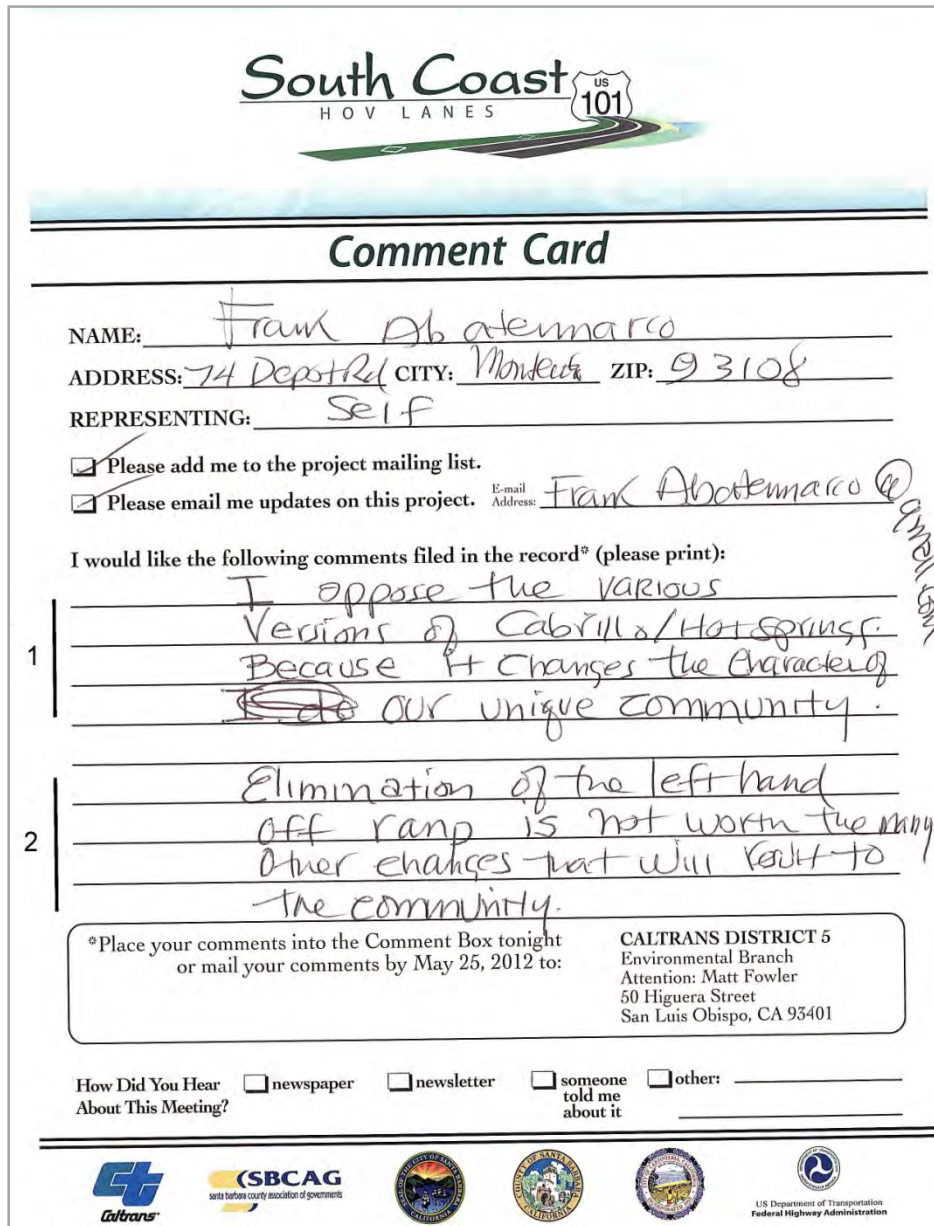 South Coast
HOV LANES
US
101
Comment Card
NAME: Frank Abatemarco
ADDRESS: 74 Depot Rd CITY: ZIP: 93108
REPRESENTING: Self
Please add me to the project mailing list.
Please email me updates on this project. E-mail Address: Frank Abatemarco @
I would like the following comments filed in the record* (please print):
1
I oppose the various
Versions of Cabrillo/Hot springs.
Because it changes the character of
our unique community.
2
Elimination of the left hand
off ramp is not worth the many
Other changes that will result to
the community.
*Place your comments into the Comment Box tonight
or mail your comments by May 25, 2012 to:
CALTRANS DISTRICT 5
Environmental Branch
Attention: Matt Fowler
50 Higuera Street
San Luis Obispo, CA 93401
How Did You Hear
About This Meeting?
newspaper
newsletter
someone
told me
about it
other:
Caltrans
SBCAG
santa barbara county association of governments
US Department of Transportation
Federal Highway Administration